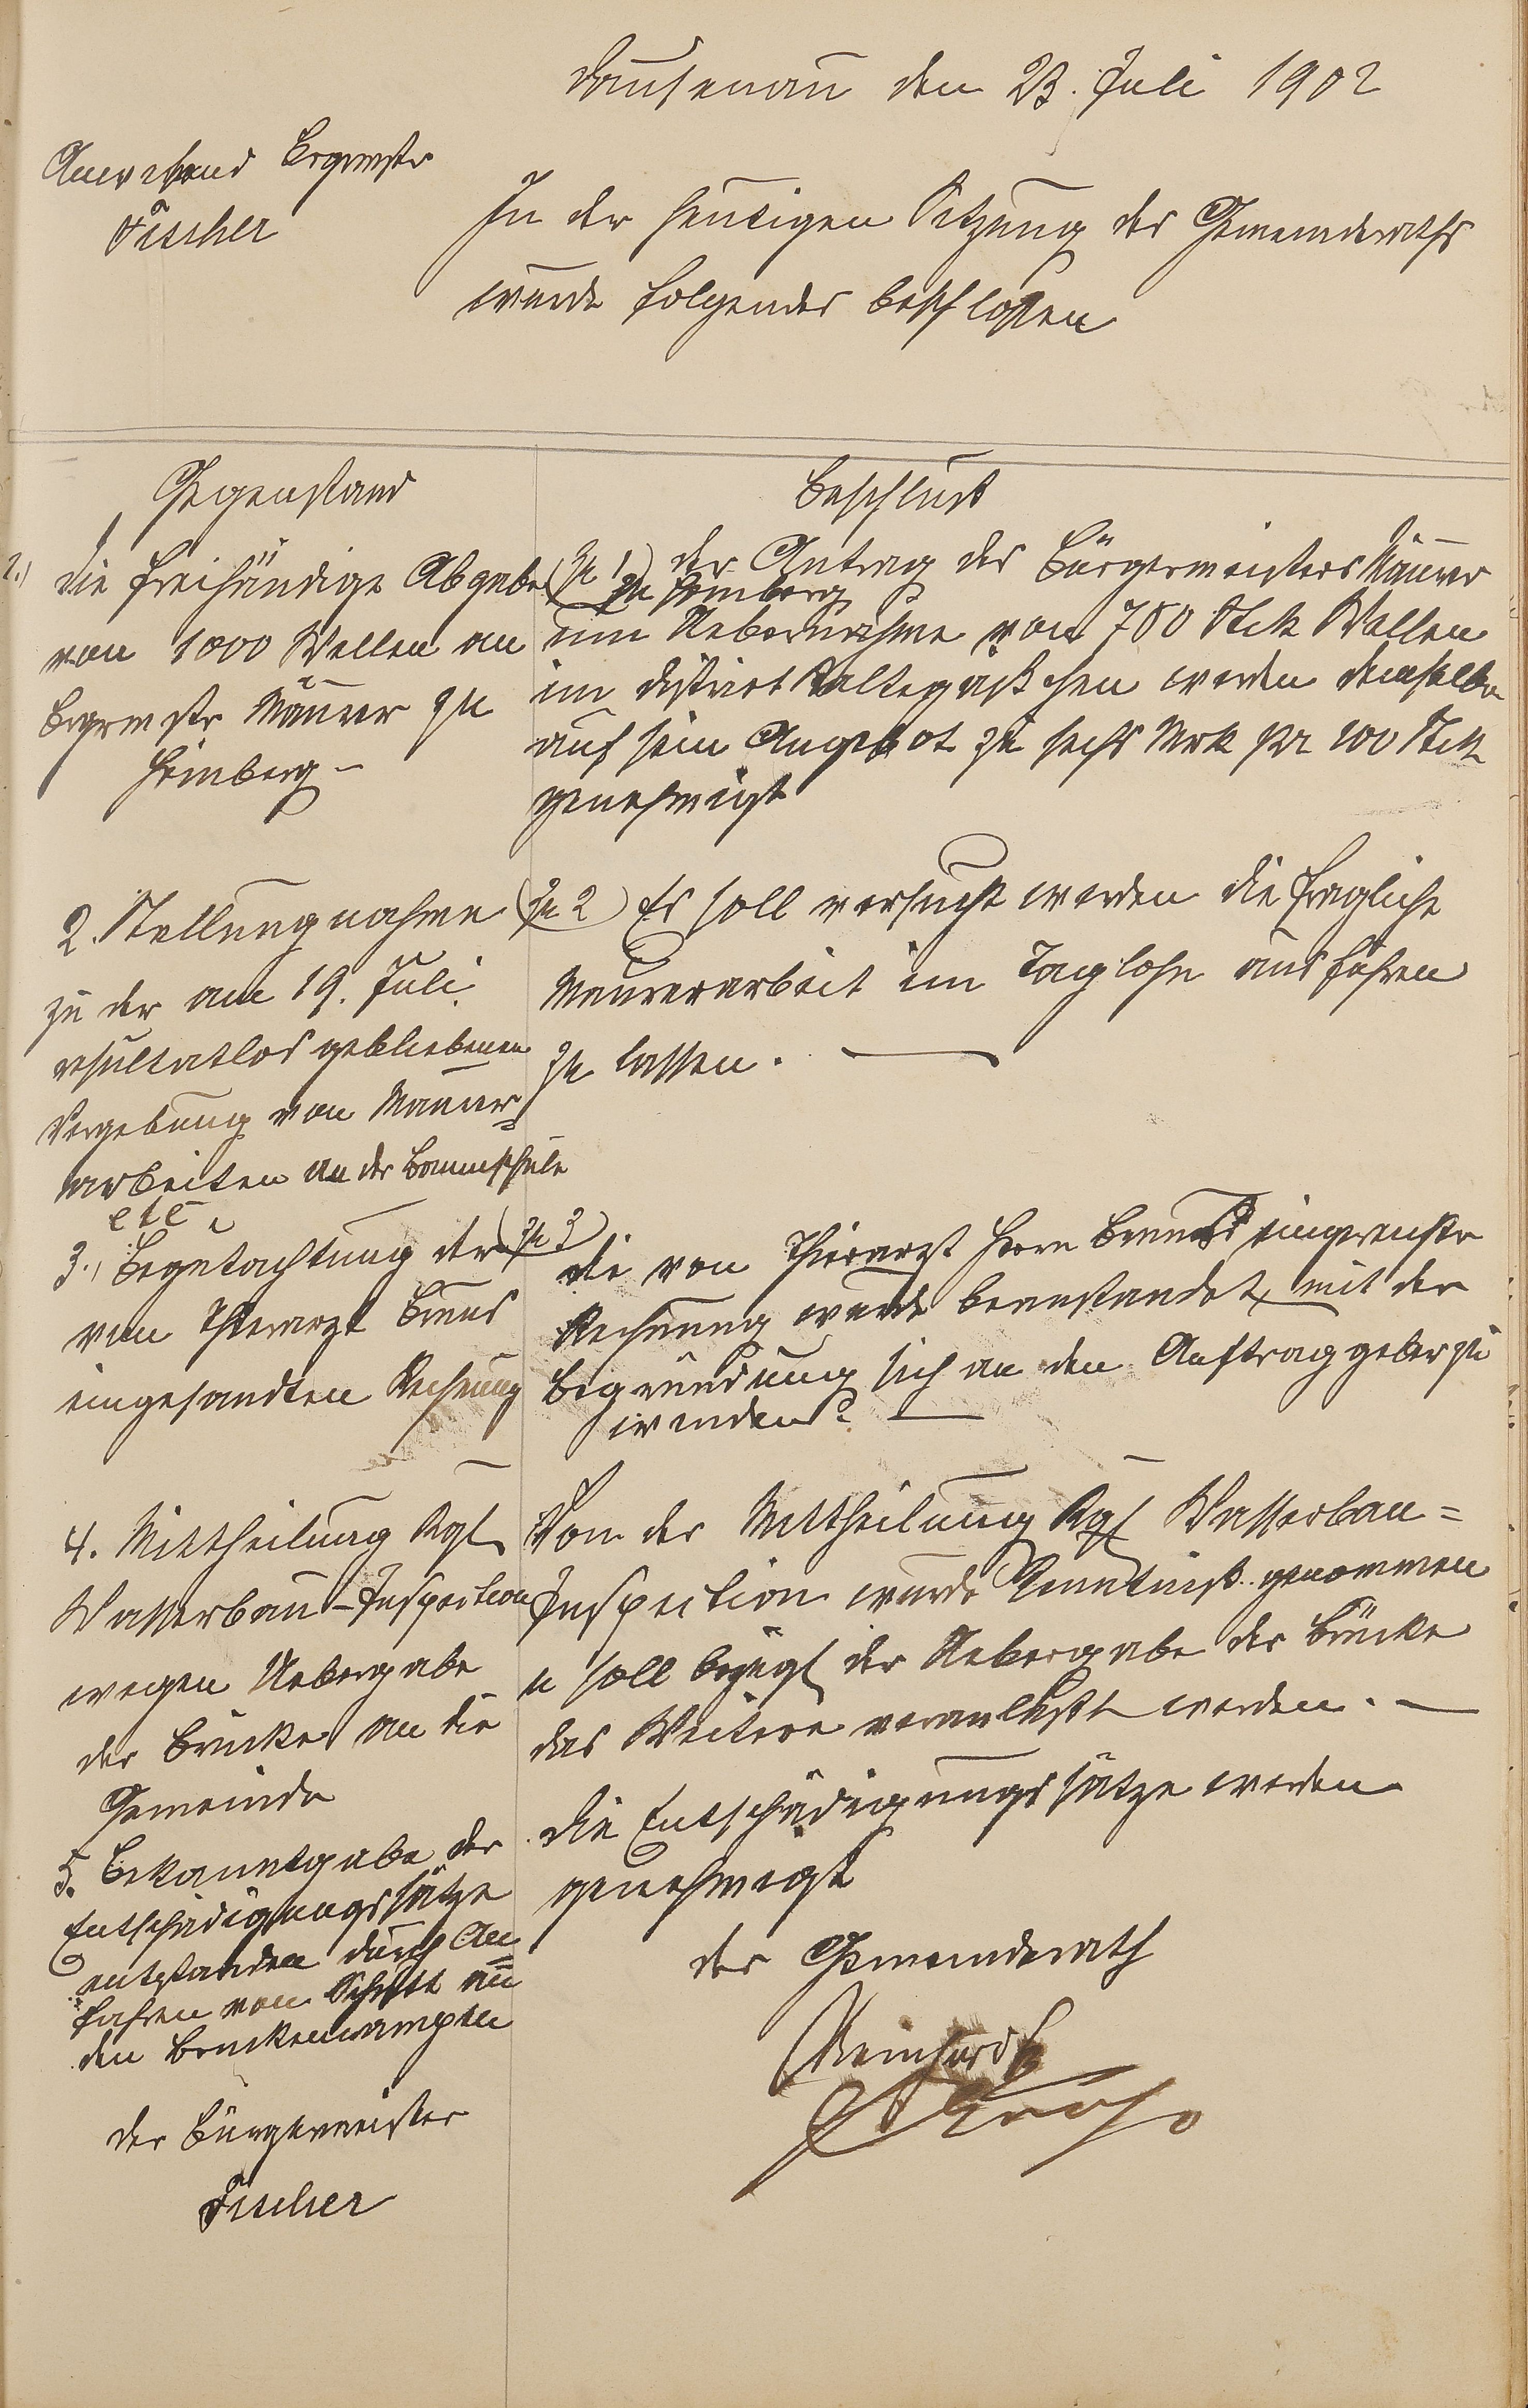 Dausenau den 23. Juli 1902
Anwesend Brgrmstr
Fischer
In der heutigen Sitzung des Gemeinderaths
wurde folgendes beschlossen
Gegenstand
1.) die freihändige Abgabe
von 1000 Wellen an
Brgrmstr Maurer zu
Hömberg –
2. Stellungnahme
zu der am 19. Juli
resultatlos gebliebenen
Vergebung von Maurer=
arbeiten an der Baumschule
etc.
3.) Begutachtung der
von Thierarzt
eingesandten Rechnung
4. Mittheilung Kgl
Wasserbau-Inspection
wegen Uebergabe
der Brücke an die
Gemeinde
5. Bekanntgabe der
Entschädigungssätze
entstanden durch An=
fahren von Schutt an
den Brückenrampen
der Bürgermeister
Fischer
Beschluß
(zu 1) der Antrag des Bürgermeisters Maurer
zu Hömberg
um Uebernahme von 700 Stck Wellen
im District werden demselben
auf sein Angebot zu sechs Mrk pr 100 Stck
genehmigt
(zu 2) Es soll versucht werden die fragliche
Maurerarbeit im Taglohn ausführen
zu lassen. —
(zu 3)
die von Thierarzt Herrn eingereichte
Rechnung wurde beanstandet, mit der
Begründung sich an den Auftraggeber zu
wenden. —
Von der Mittheilung Kgl Wasserbau=
Inspection wurde Kenntniß genommen
u soll bezügl der Uebergabe der Brücke
das Weitere veranlaßt werden. —
die Entschädigungssätze werden
genehmigt
der Gemeinderath
Reinhardt